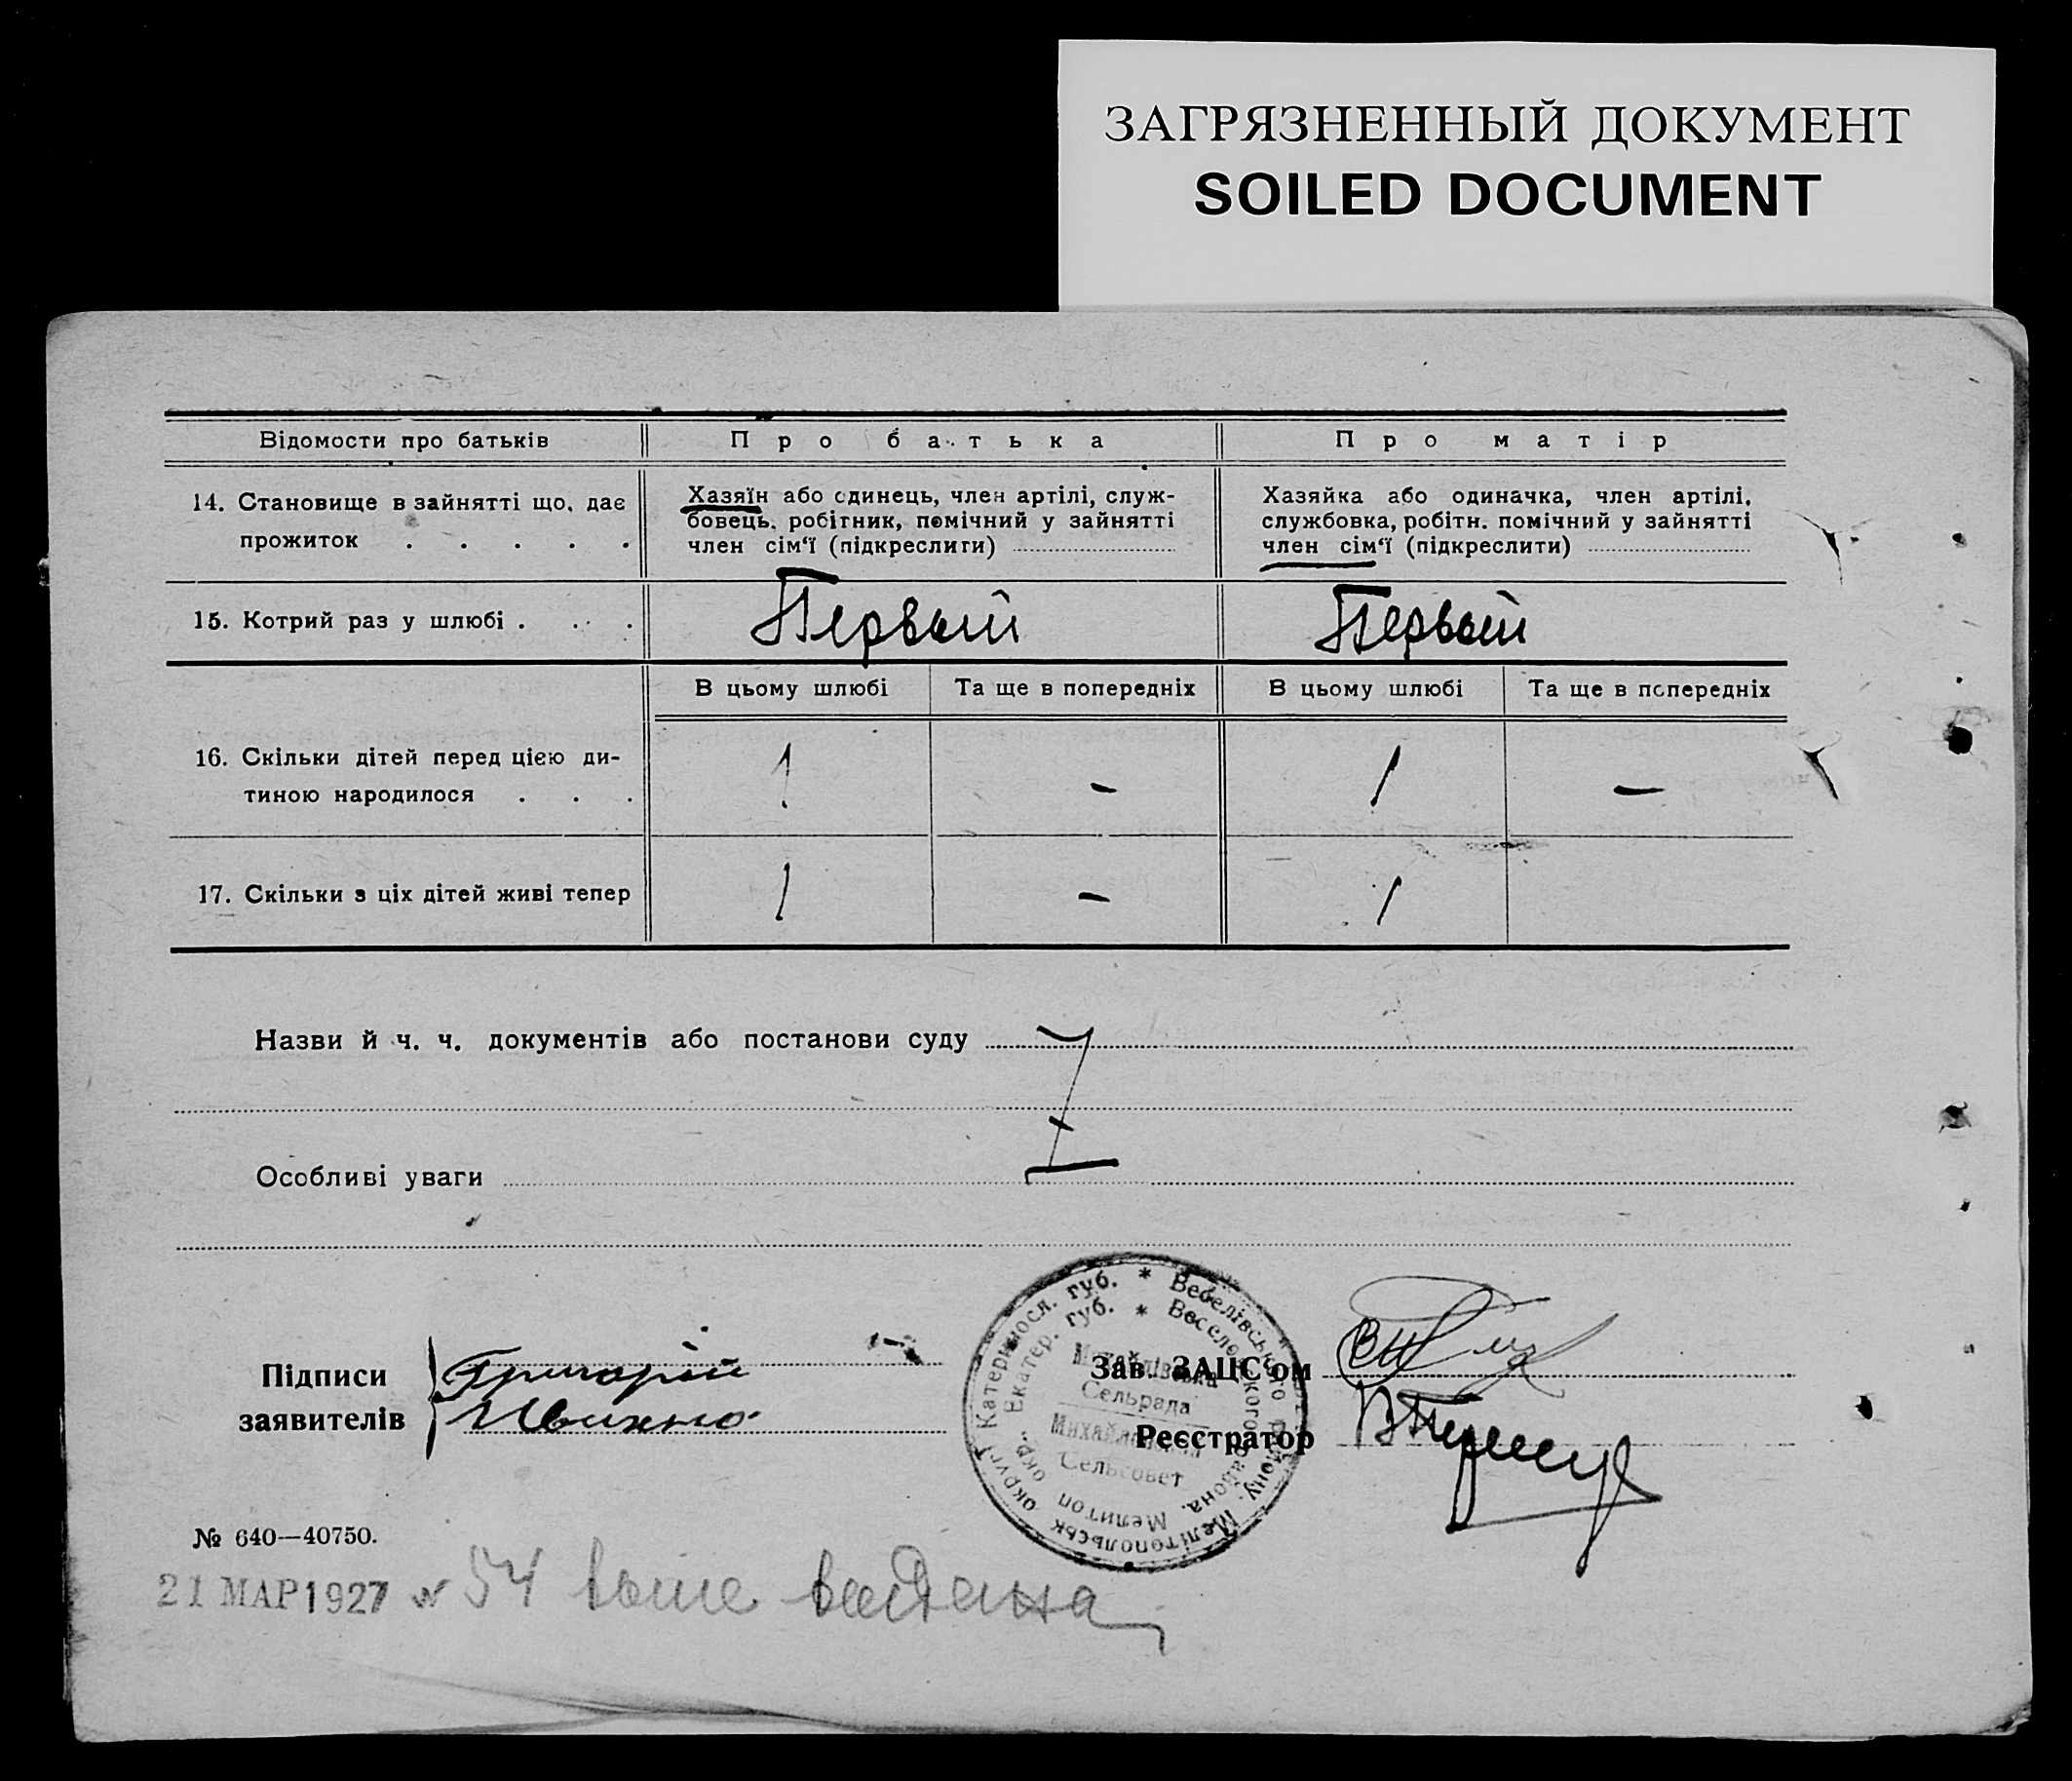 ЗАГРЯЗНЕННЫЙ ДОКУМЕНТ
SOILED DOCUMENT
Відомости про батьків Про батька Про матір
14. Становище в зайнятті що, дає
прожиток . . . . .
Хазяїн або одинець, член артілі, служ-
бовець, робітник, помічний у зайнятті
член сім‘ї (підкреслити)
Хазяйка або одиначка, член артілі,
службовка, робітн. помічний у зайнятті
член сім‘ї (підкреслити)
15. Котрий раз у шлюбі . . . . Первый Первый
В цьому шлюбі Та ще в попередніх В цьому шлюбі Та ще в попередніх
16. Скільки дітей перед цією ди-
тиною народилося . . . 1 - 1 -
17. Скільки з ціх дітей живі тепер 1 - 1
Назви й ч. ч. документів або постанови суду
Особливі уваги
Підписи
заявителів
Григорій
Ивихно
Катериносл. губ. * Веселівського району. Мелітопольськ округ
Екатер. губ. * Веселовского района, Мелитоп окр.
Михайлівська
Сельрада
Михайловский
Сельсовет
Зав. ЗАЦС‘ом
Реєстратор
№ 640—40750.
21 МАР 1927 № 54